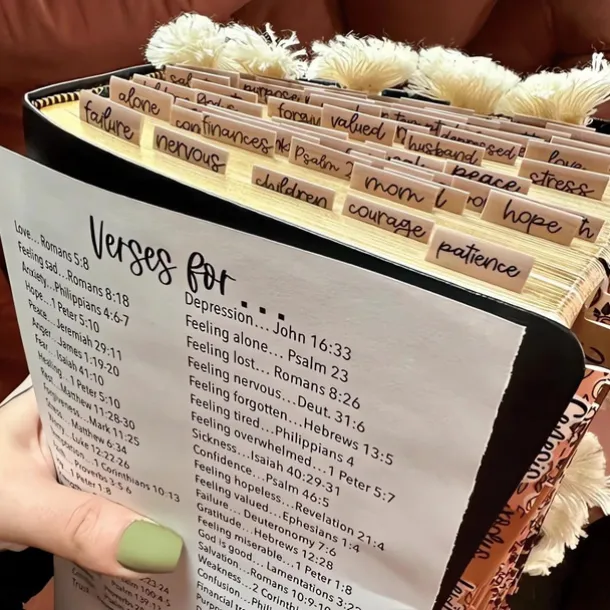 failure
alone
nervous
finances
forgive
valued
husband
love
stress
peace
Psalm
children
mom
courage
hope
h
patience
Verses for...
Love... Romans 5:8
Feeling sad...Romans 8:18
Anxiety...Philippians 4:6-7
Hope...1 Peter 5:10
Peace...Jeremiah 29:11
Anger...James 1:19-20
Fear...Isaiah 41:10
Healing...1 Peter 5:10
Rest...Matthew 11:28-30
Forgiveness...Mark 11:25
Matthew 6:34
Luke 12:22-26
1 Corinthians 10:13
Proverbs 3:5-6
1 Peter 1:8
Depression...John 16:33
Feeling alone... Psalm 23
Feeling lost... Romans 8:26
Feeling nervous...Deut. 31:6
Feeling forgotten...Hebrews 13:5
Feeling tired...Philippians 4
Feeling overwhelmed...1 Peter 5:7
Sickness...Isaiah 40:29-31
Confidence... Psalm 46:5
Feeling hopeless...Revelation 21:4
Feeling valued...Ephesians 1:4
Failure... Deuteronomy 7:6
Gratitude... Hebrews 12:28
Feeling miserable...1 Peter 1:8
God is good... Lamentations 3:22
Salvation...Romans 10:9-10
Weakness...2 Corinthi
Confusion...Phili
Financial